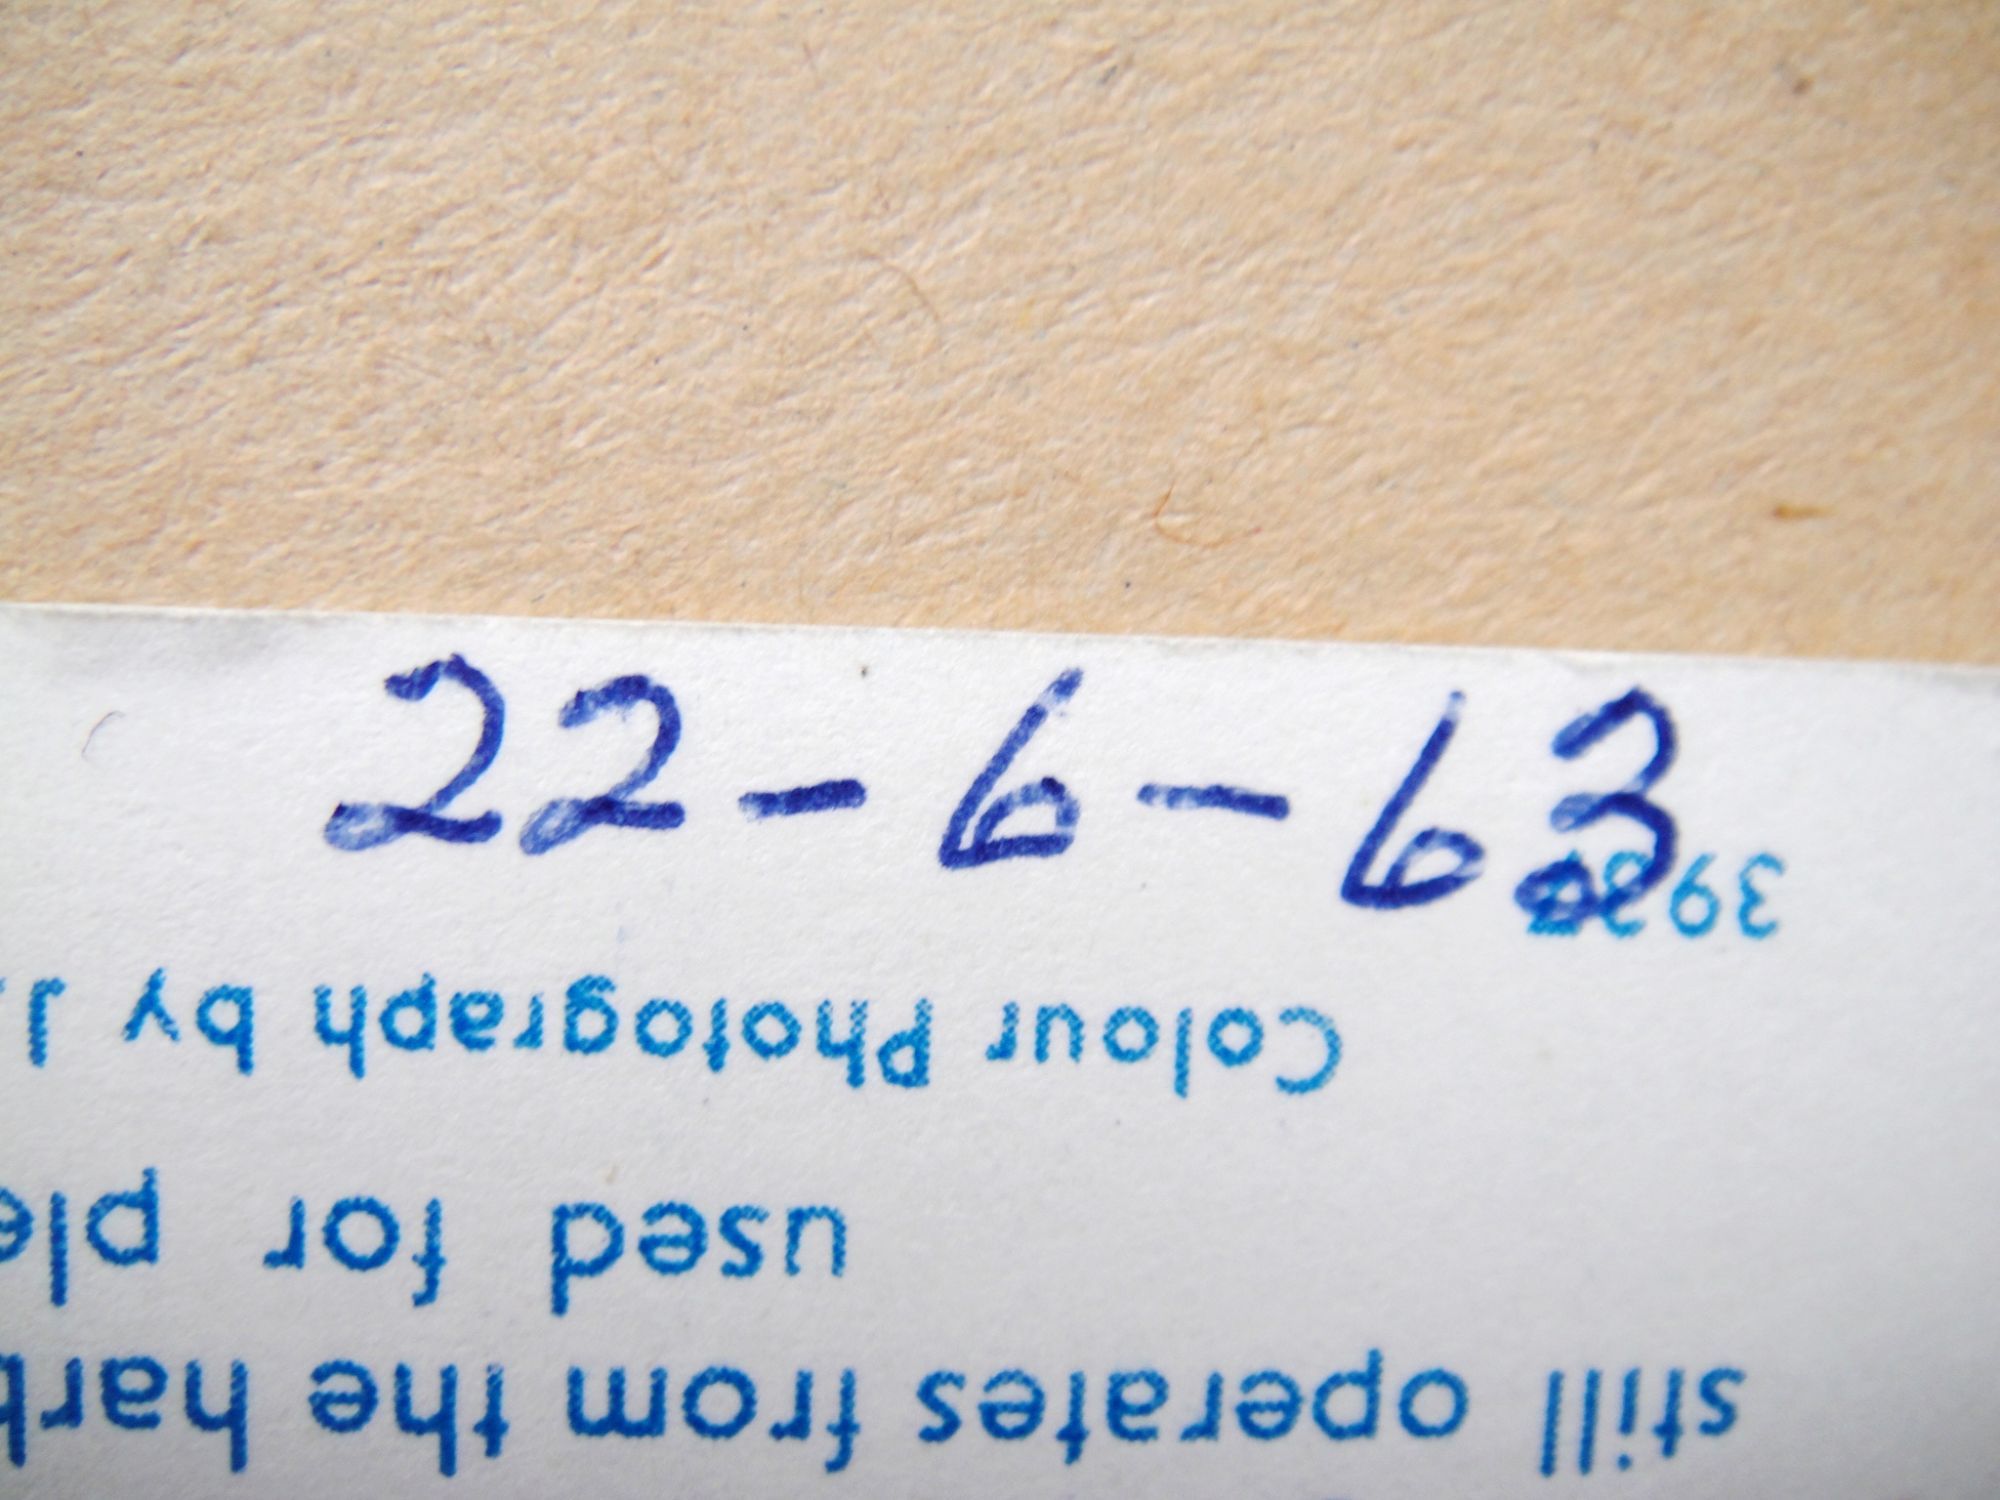 22-6-63
still operates from the harb
used for ple
Colour Photograph by J.